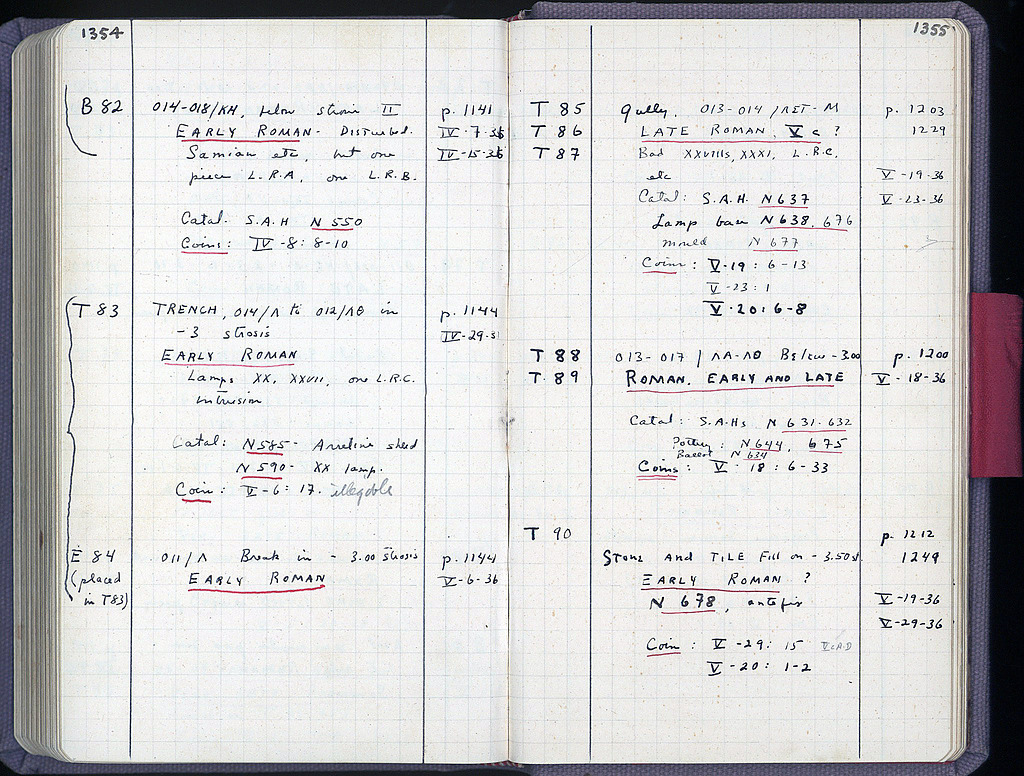 1354
B 82 014-018/ΚΗ, below strosis II p. 1141
EARLY ROMAN - Disturbed. IV-7-36
Samian etc, but one IV-15-36
piece L.R.A, one L.R.B.
Catal. S.A.H N 550
Coins: IV-8: 8-10
T 83 TRENCH, 014/Λ to 012/ΛΘ in p. 1144
-3 strosis IV-29-3
EARLY ROMAN
Lamps XX, XXVII, one L.R.C.
intrusion
Catal: N585- Arretine sherd
N 590- XX lamp.
Coin: V-6: 17. illegible
E 84 011/Λ Break in - 3.00 strosis p. 1144
(placed EARLY ROMAN V-6-36
in T83)
1355
T 85 gully, 013-014 / ΛΣΤ-Μ p. 1203
T 86 LATE ROMAN, V c ? 1229
T 87 Bad XXVIIIs, XXXI, L.R.C.
etc V-19-36
Catal: S.A.H. N637 V-23-36
Lamp base N638, 676
mould N 677
Coins: V-19: 6-13
V-23: 1
V-20: 6-8
T 88 013-017 / ΛΑ-ΛΘ Below -3.00 p. 1200
T 89 ROMAN, EARLY AND LATE V-18-36
Catal: S.A.Hs N 631-632
Pottery: N644, 675
N 634
Coins: V-18: 6-33
T 90 p. 1212
STONE AND TILE Fill on - 3.50st. 1249
EARLY ROMAN ?
N 678, antefix V-19-36
V-29-36
Coin: V-29: 15 V c A.D
V-20: 1-2